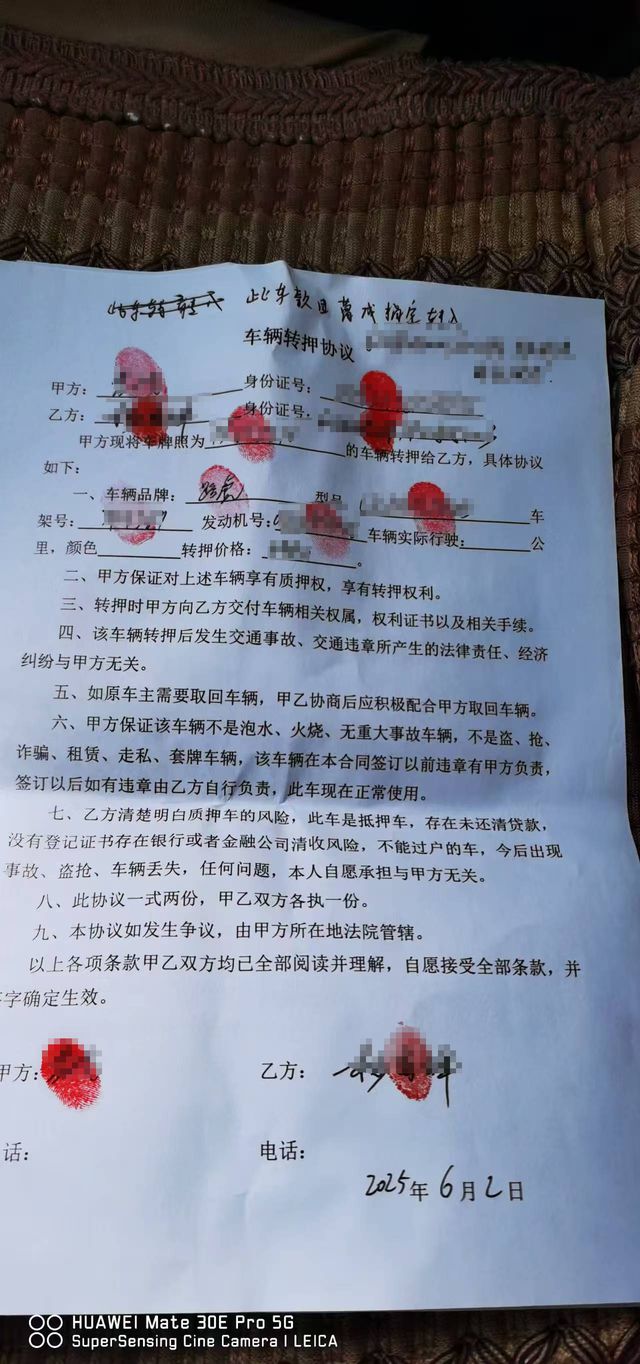 此车款
车辆转押协议
甲方： 身份证号：
乙方： 身份证号：
甲方现将车牌照为 的车辆转押给乙方，具体协议
如下：
一、车辆品牌：路虎 型号 车
架号： 发动机号： 车辆实际行驶： 公
里，颜色 转押价格： 。
二、甲方保证对上述车辆享有质押权，享有转押权利。
三、转押时甲方向乙方交付车辆相关权属，权利证书以及相关手续。
四、该车辆转押后发生交通事故、交通违章所产生的法律责任、经济
纠纷与甲方无关。
五、如原车主需要取回车辆，甲乙协商后应积极配合甲方取回车辆。
六、甲方保证该车辆不是泡水、火烧、无重大事故车辆，不是盗、抢、
诈骗、租赁、走私、套牌车辆，该车辆在本合同签订以前违章有甲方负责，
签订以后如有违章由乙方自行负责，此车现在正常使用。
七、乙方清楚明白质押车的风险，此车是抵押车，存在未还清贷款，
没有登记证书存在银行或者金融公司清收风险，不能过户的车，今后出现
事故、盗抢、车辆丢失，任何问题，本人自愿承担与甲方无关。
八、此协议一式两份，甲乙双方各执一份。
九、本协议如发生争议，由甲方所在地法院管辖。
以上各项条款甲乙双方均已全部阅读并理解，自愿接受全部条款，并
字确定生效。
甲方： 乙方：
话： 电话：
2025年6月2日
HUAWEI Mate 30E Pro 5G
SuperSensing Cine Camera | LEICA